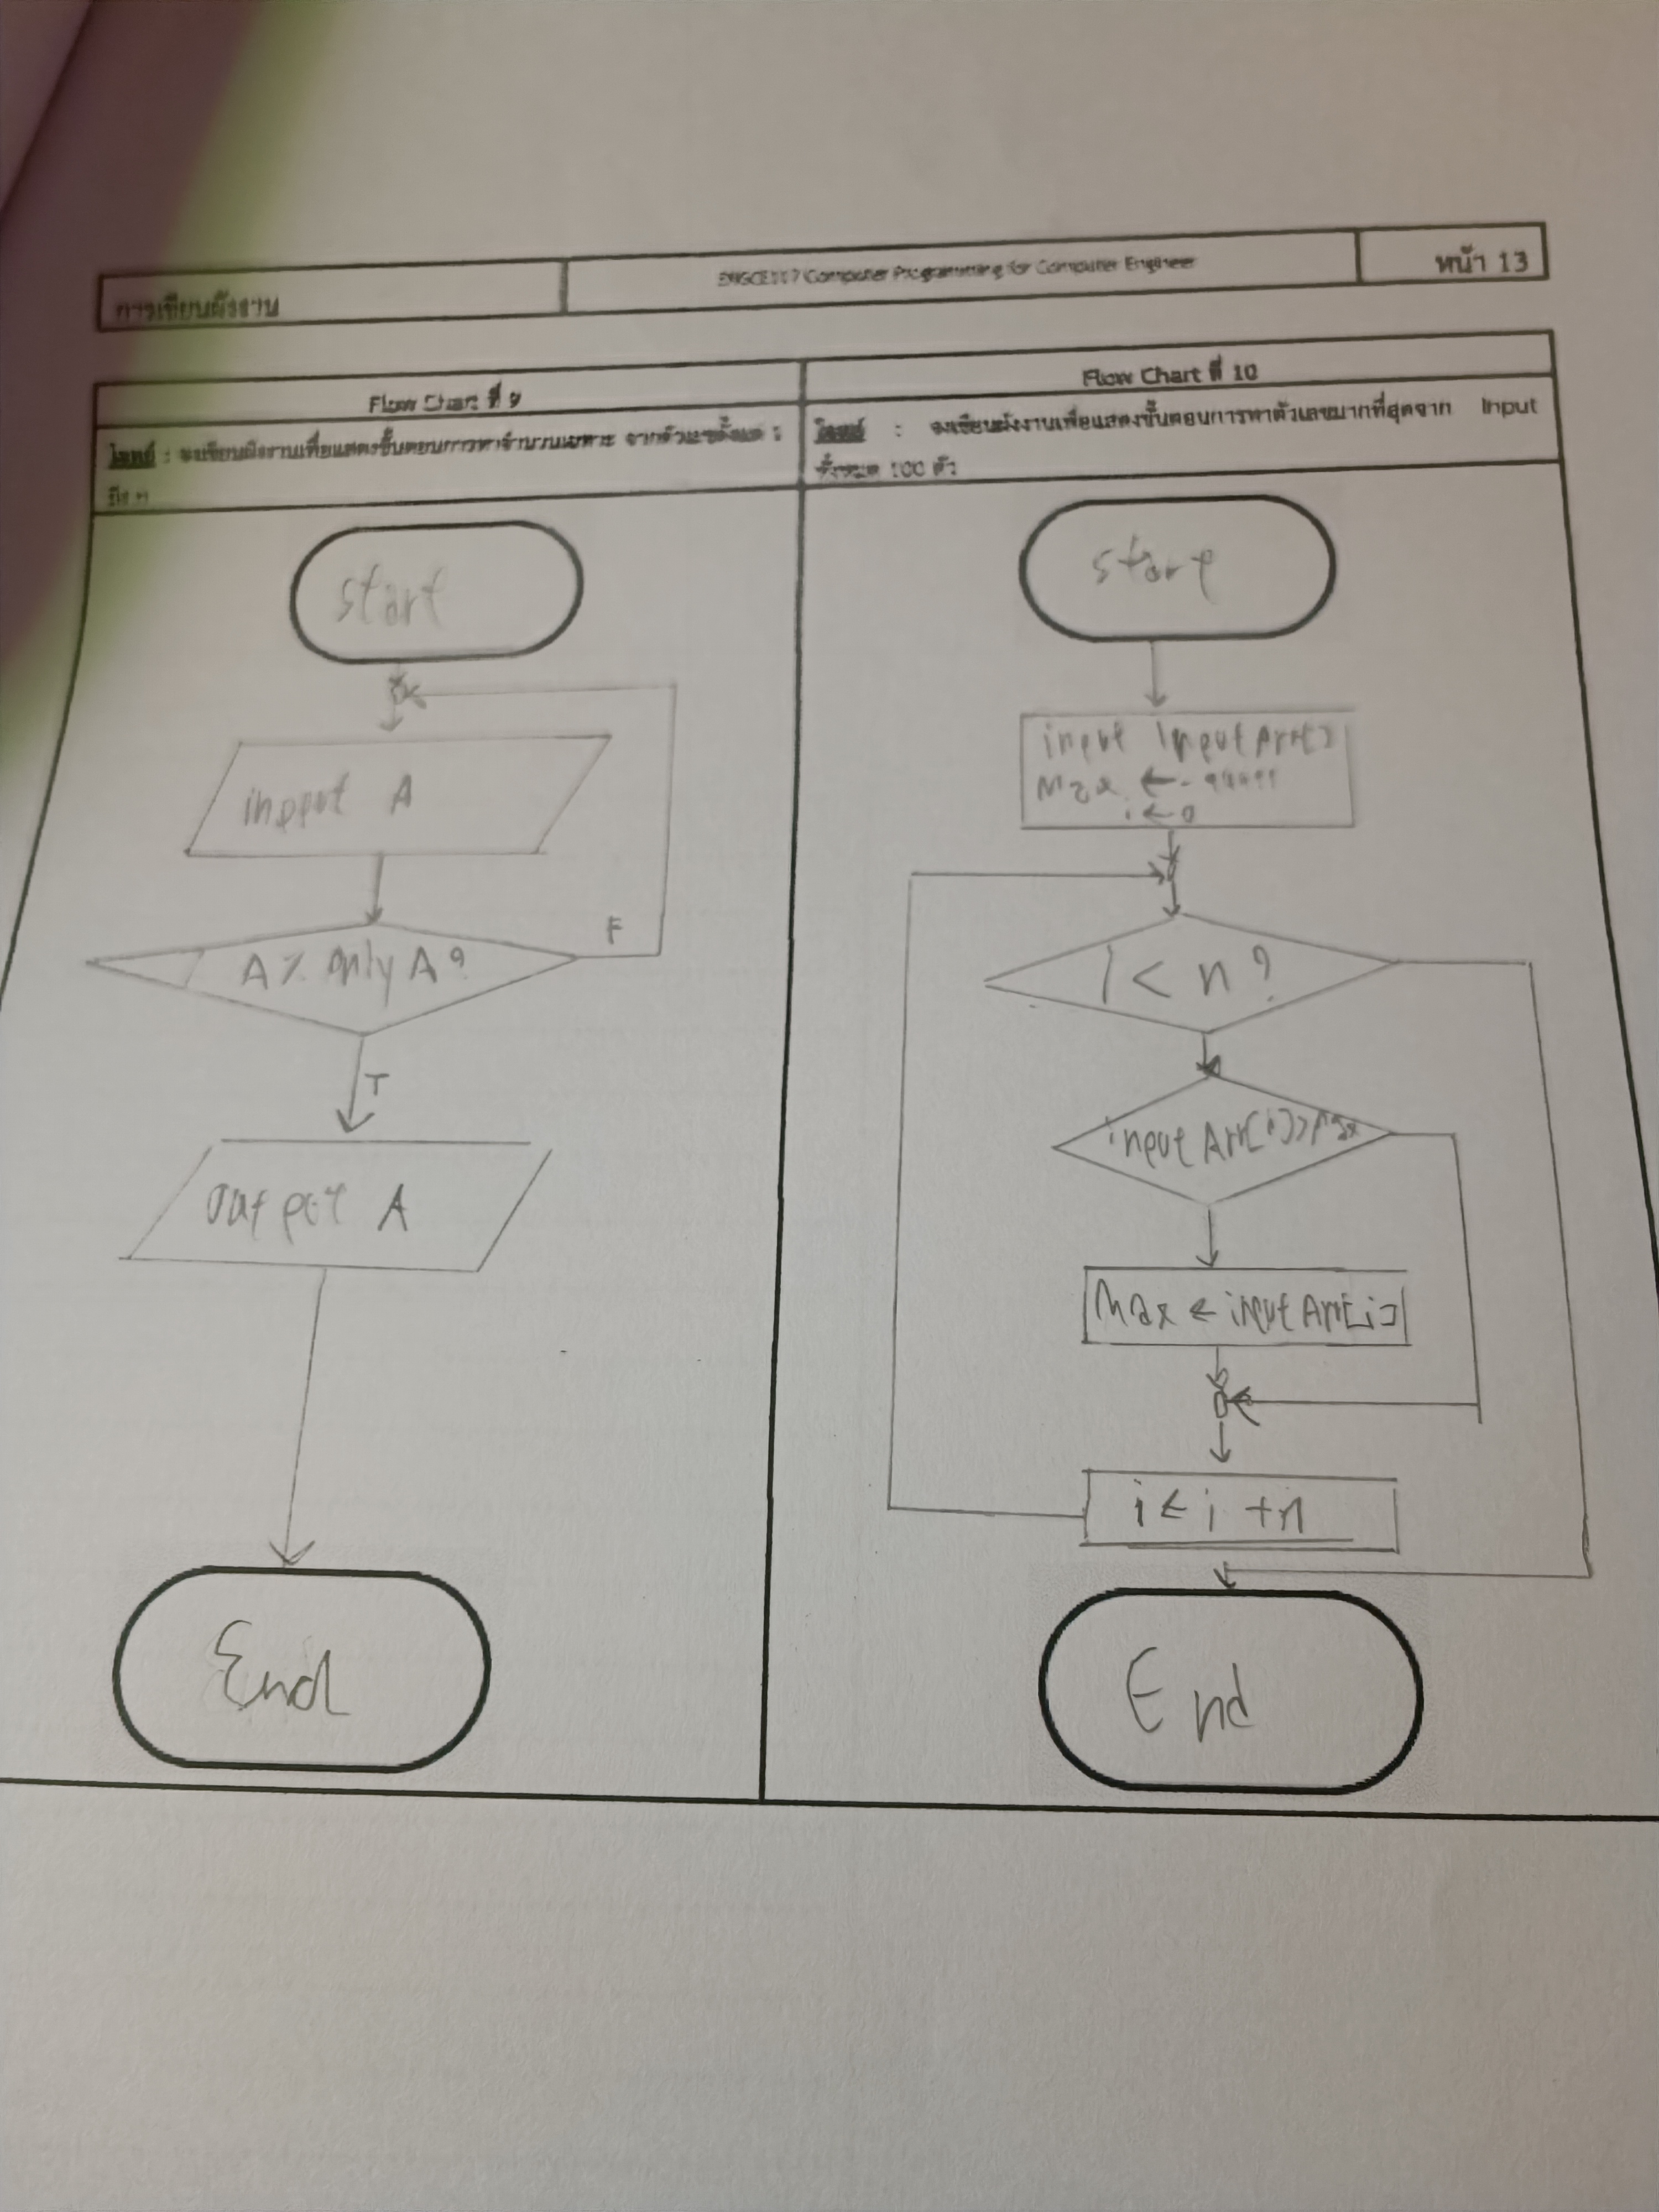 การเขียนผังงาน
ENGCE117 Computer Programming for Computer Engineer
หน้า 13
Flow Chart ที่ 9
โจทย์ : จงเขียนผังงานเพื่อแสดงขั้นตอนการหาจำนวนเฉพาะ จากตัวเลขตั้งแต่ 1
ถึง n
start
input A
A % only A?
F
T
output A
End
Flow Chart ที่ 10
โจทย์ : จงเขียนผังงานเพื่อแสดงขั้นตอนการหาตัวเลขมากที่สุดจาก Input
ทั้งหมด 100 ตัว
start
input InputArr[]
Max ← -99999
i ← 0
i < n ?
input Arr[i] > Max
Max ← input Arr[i]
i ← i + n
End